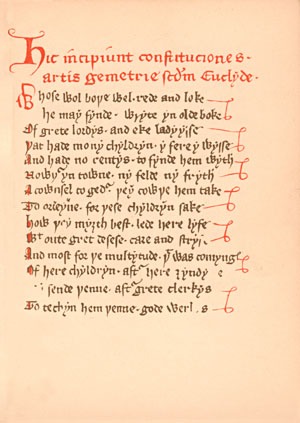 Hic incipiunt constituciones
artis gemetrie scdm Euclyde.
Whose wol boþe wel rede and loke
He may fynde wryte yn olde boke
Of grete lordys and eke ladyysse
Þat hade mony chyldryn y fere y wysse
And hade no rentys to fynde hem wyth
Nowþr yn towne ny felde ny fryth
A cownsel to gedr þey cowþe hem take
To ordeyne for þese chyldryn sake
How þey myȝth best lede here lyfe
Wt oute gret desese care and stryf
And most for þe multytude þt was comynge
Of here chyldryn aftr here
sende þenne aftr grete clerkys
To techyn hem þenne gode